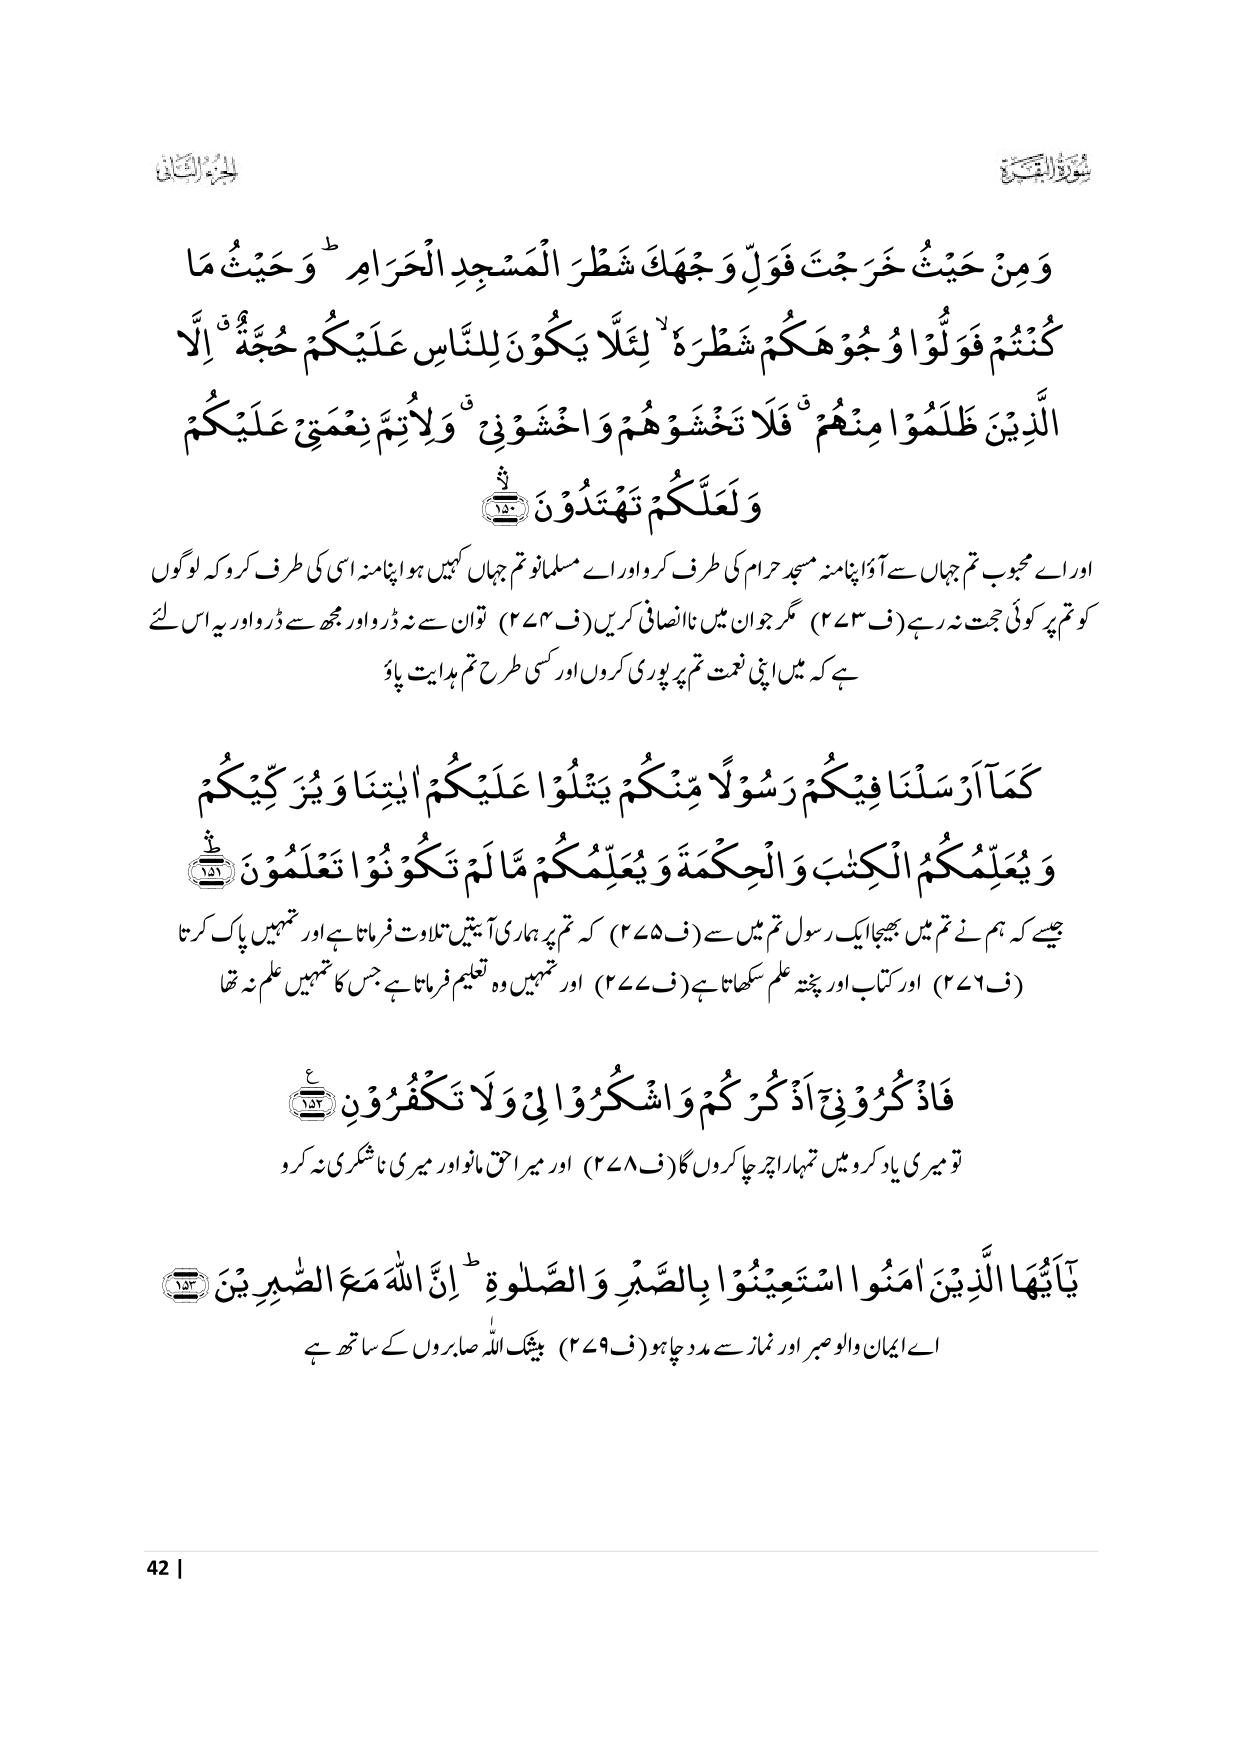 سُوْرَةُ الْبَقَرَةِ
الجزء الثانی
وَ مِنْ حَیْثُ خَرَجْتَ فَوَلِّ وَجْهَكَ شَطْرَ الْمَسْجِدِ الْحَرَامِ ؕ وَ حَیْثُ مَا
كُنْتُمْ فَوَلُّوْا وُجُوْهَكُمْ شَطْرَهٗ ۙ لِئَلَّا یَكُوْنَ لِلنَّاسِ عَلَیْكُمْ حُجَّةٌ ۗ اِلَّا
الَّذِیْنَ ظَلَمُوْا مِنْهُمْ ۗ فَلَا تَخْشَوْهُمْ وَ اخْشَوْنِیْ ۗ وَلِاُتِمَّ نِعْمَتِیْ عَلَیْكُمْ
وَ لَعَلَّكُمْ تَهْتَدُوْنَ ﴿۱۵۰﴾ۙۛ
اور اے محبوب تم جہاں سے آؤ اپنا منہ مسجد حرام کی طرف کرو اور اے مسلمانو تم جہاں کہیں ہو اپنا منہ اسی کی طرف کرو کہ لوگوں
کو تم پر کوئی حجت نہ رہے (ف۲۷۳) مگر جو ان میں ناانصافی کریں (ف۲۷۴) تو ان سے نہ ڈرو اور مجھ سے ڈرو اور یہ اس لئے
ہے کہ میں اپنی نعمت تم پر پوری کروں اور کسی طرح تم ہدایت پاؤ
كَمَاۤ اَرْسَلْنَا فِیْكُمْ رَسُوْلًا مِّنْكُمْ یَتْلُوْا عَلَیْكُمْ اٰیٰتِنَا وَ یُزَكِّیْكُمْ
وَ یُعَلِّمُكُمُ الْكِتٰبَ وَ الْحِكْمَةَ وَ یُعَلِّمُكُمْ مَّا لَمْ تَكُوْنُوْا تَعْلَمُوْنَ ﴿۱۵۱﴾ؕۛ
جیسے کہ ہم نے تم میں بھیجا ایک رسول تم میں سے (ف۲۷۵) کہ تم پر ہماری آیتیں تلاوت فرماتا ہے اور تمہیں پاک کرتا
(ف۲۷۶) اور کتاب اور پختہ علم سکھاتا ہے (ف۲۷۷) اور تمہیں وہ تعلیم فرماتا ہے جس کا تمہیں علم نہ تھا
فَاذْكُرُوْنِیْۤ اَذْكُرْكُمْ وَ اشْكُرُوْا لِیْ وَ لَا تَكْفُرُوْنِ ﴿۱۵۲﴾ع
تو میری یاد کرو میں تمہارا چرچا کروں گا (ف۲۷۸) اور میرا حق مانو اور میری ناشکری نہ کرو
یٰۤاَیُّهَا الَّذِیْنَ اٰمَنُوا اسْتَعِیْنُوْا بِالصَّبْرِ وَ الصَّلٰوةِ ؕ اِنَّ اللّٰهَ مَعَ الصّٰبِرِیْنَ ﴿۱۵۳﴾
اے ایمان والو صبر اور نماز سے مدد چاہو (ف۲۷۹) بیشک اللّٰہ صابروں کے ساتھ ہے
42 |